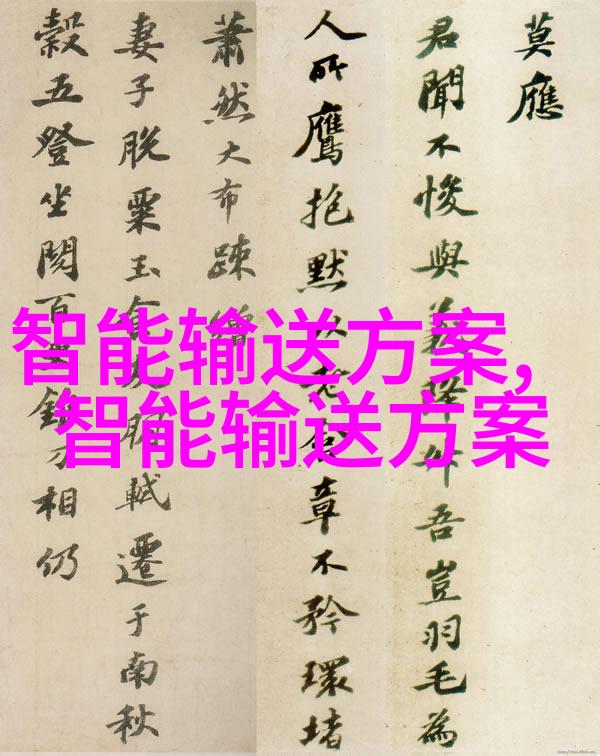 莫應
君聞不悛與義升吾豈羽毛為
人所鷹抱默以老章不矜環堵
蕭然大布疎繒
妻子脫粟玉食朋軾遷于南秋
穀五登坐閱百刀相仍
智能输送方案,
智能输送方案